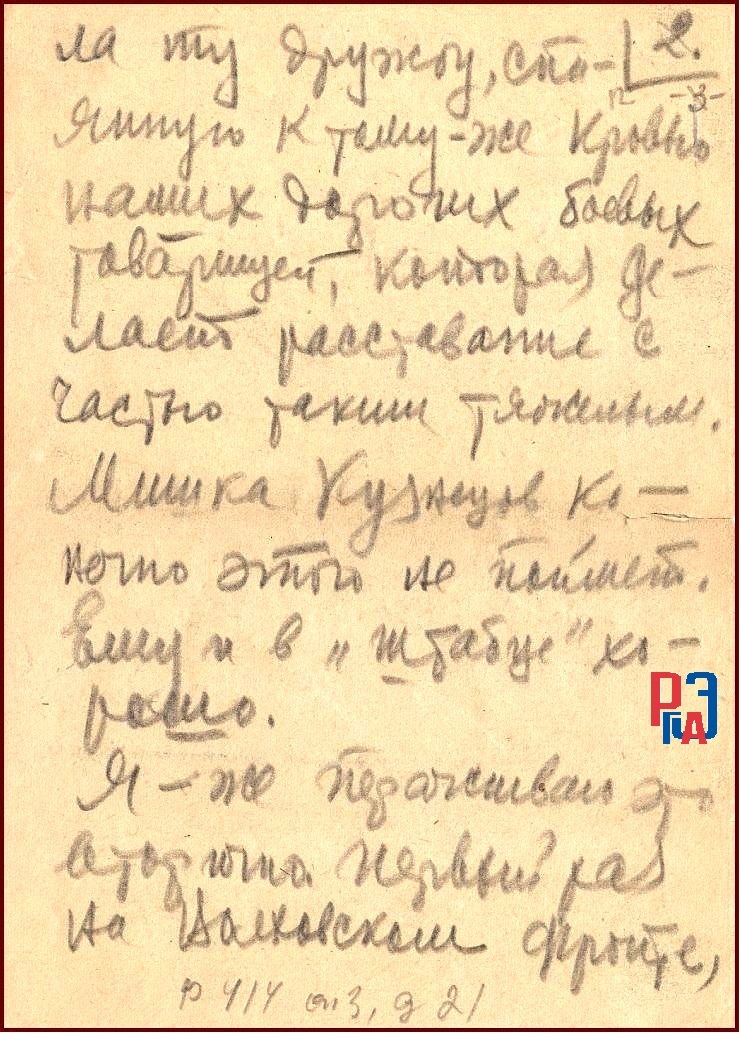 ла ту дружбу, спа- 2.
янную к тому-же кровью -3-
наших дорогих боевых
товарищей, которая де-
лает расставание с
частью таким тяжелым.
Мишка Кузнецов ко-
нечно этого не поймет.
Ему и в „штабце" хо-
рошо.
Я-же переживаю это
вторично. Первый раз
на Волховском фронте,
РГАЭ
р 414 оп 3, д 21